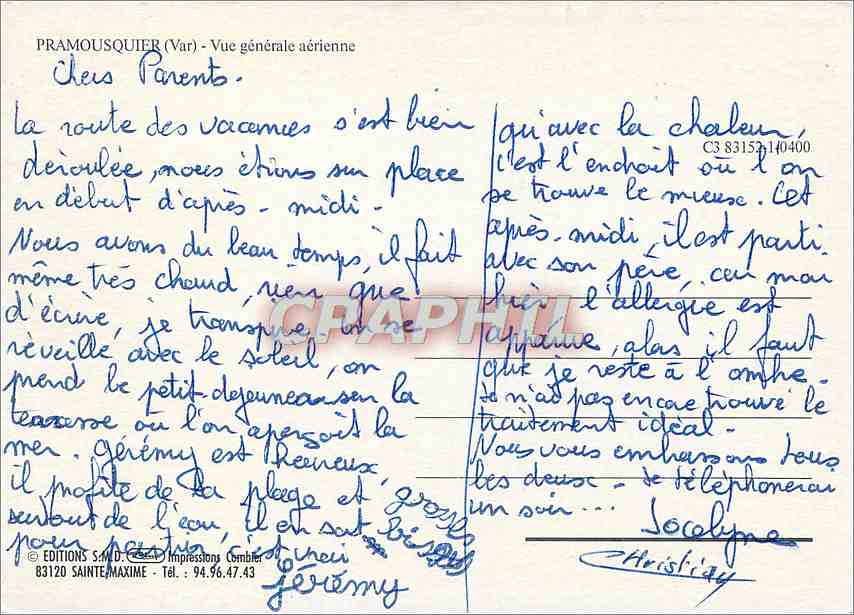 PRAMOUSQUIER (Var) - Vue générale aérienne
Chers Parents.
La route des vacances s'est bien
déroulée, nous étions sur place
en début d'après-midi.
Nous avons du beau temps, il fait
même très chaud, rien que
d'écrire, je transpire, on se
réveille avec le soleil, on
prend le petit dejeuner sur la
terrasse où l'on aperçoit la
mer. Gérémy est heureux,
il profite de la plage et
surtout de l'eau, il en sort
pour partir, c'est vrai
qu'avec la chaleur,
c'est l'endroit où l'on
se trouve le mieux. Cet
après-midi, il est parti
avec son père, car moi
hier l'allergie est
apparue, alas il faut
que je reste à l'ombre.
Je n'ai pas encore trouvé le
traitement idéal.
Nous vous embrassons tous
les deux - Je téléphonerai
un soir...
Jocelyne
Christian
grosses
bisous
Jérémy
C3 83152-1/0400
CPAPHIL
© EDITIONS S.M.D. Impressions Combier
83120 SAINTE-MAXIME - Tél. : 94.96.47.43